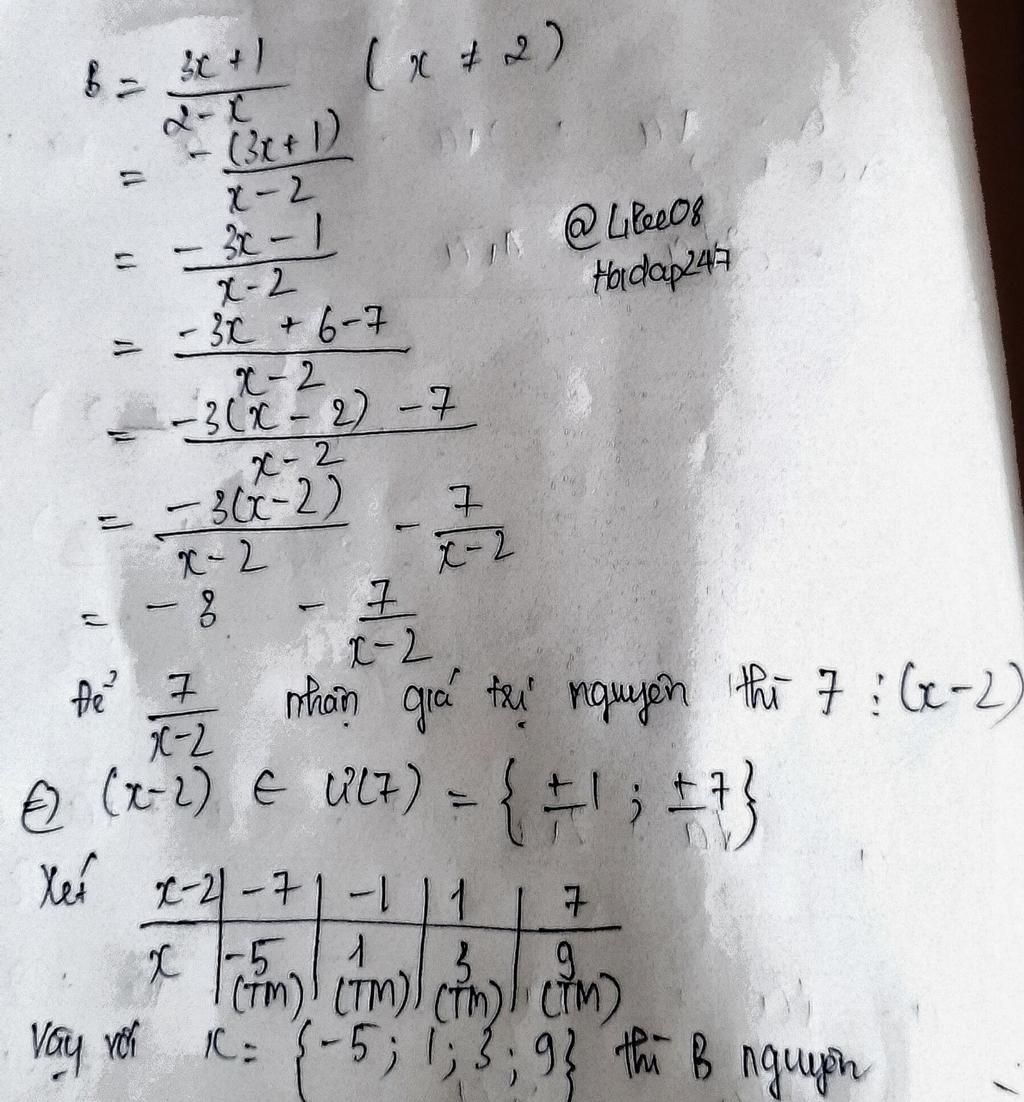 B = (3x + 1)/(2 - x) (x ≠ 2)
= -(3x + 1)/(x - 2)
@LiLee08
Hoidap247
= (-3x - 1)/(x - 2)
= (-3x + 6 - 7)/(x - 2)
= (-3(x - 2) - 7)/(x - 2)
= -3(x - 2)/(x - 2) - 7/(x - 2)
= -3 - 7/(x - 2)
Để 7/(x - 2) nhận giá trị nguyên thì 7 ⋮ (x - 2)
⇔ (x - 2) ∈ Ư(7) = {±1 ; ±7}
Xét x-2 | -7 | -1 | 1 | 7
x | -5 (TM) | 1 (TM) | 3 (TM) | 9 (TM)
Vậy với x = {-5 ; 1 ; 3 ; 9} thì B nguyên